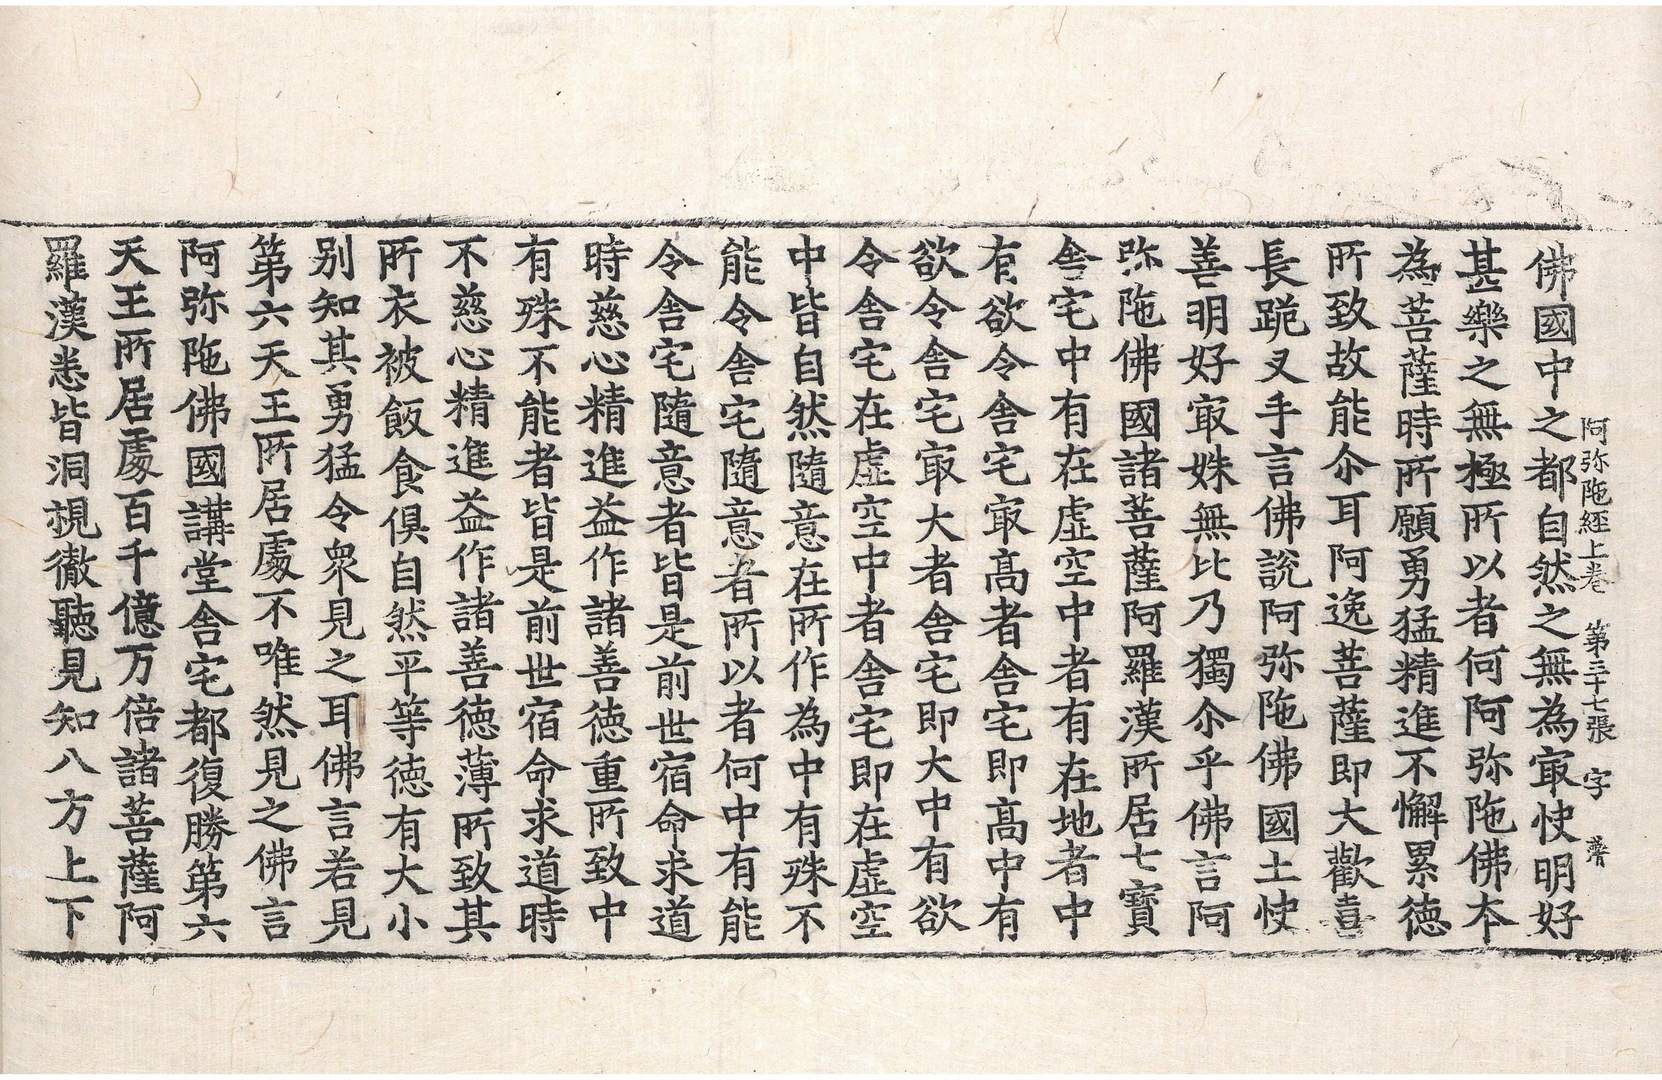 阿弥陁經上卷　第三十七張　字
佛國中之都自然之無為㝡快明好
甚樂之無極所以者何阿弥陁佛本
為菩薩時所願勇猛精進不懈累德
所致故能尒耳阿逸菩薩即大歡喜
長跪叉手言佛說阿弥陁佛國土快
善明好㝡姝無比乃獨尒乎佛言阿
弥陁佛國諸菩薩阿羅漢所居七寶
舍宅中有在虛空中者有在地者中
有欲令舍宅㝡髙者舍宅即髙中有
欲令舍宅㝡大者舍宅即大中有欲
令舍宅在虛空中者舍宅即在虛空
中皆自然隨意在所作為中有殊不
能令舍宅隨意者所以者何中有能
令舍宅隨意者皆是前世宿命求道
時慈心精進益作諸善德重所致中
有殊不能者皆是前世宿命求道時
不慈心精進益作諸善德薄所致其
所衣被飯食俱自然平等德有大小
別知其勇猛令衆見之耳佛言若見
第六天王所居處不唯然見之佛言
阿弥陁佛國講堂舍宅都復勝第六
天王所居處百千億万倍諸菩薩阿
羅漢悉皆洞視徹聽見知八方上下